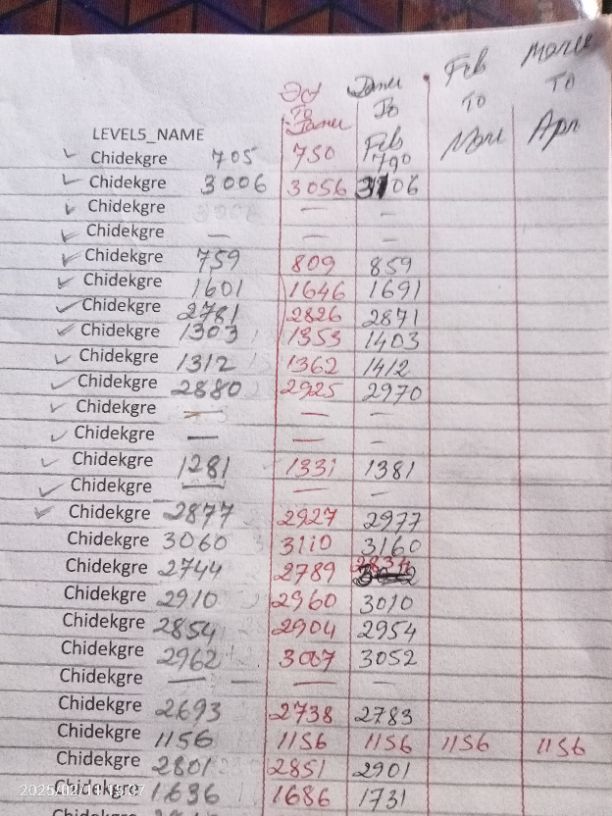 Oct Janu Feb March
To To To To
Janu Feb Mar Apr
LEVEL5_NAME
Chidekgre 705 750 790
Chidekgre 3006 3056 3106
Chidekgre — —
Chidekgre — — —
Chidekgre 759 809 859
Chidekgre 1601 1646 1691
Chidekgre 2781 2826 2871
Chidekgre 1303 1353 1403
Chidekgre 1312 1362 1412
Chidekgre 2880 2925 2970
Chidekgre — — —
Chidekgre — — —
Chidekgre 1281 1331 1381
Chidekgre — — —
Chidekgre 2877 2927 2977
Chidekgre 3060 3110 3160
Chidekgre 2744 2789 2834
Chidekgre 2910 2960 3010
Chidekgre 2854 2904 2954
Chidekgre 2962 3007 3052
Chidekgre — — — —
Chidekgre 2693 2738 2783
Chidekgre 1156 1156 1156 1156 1156
Chidekgre 2801 2851 2901
Chidekgre 1636 1686 1731